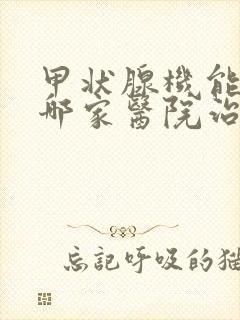 甲狀腺機能
哪家醫院治
忘記呼吸的猫